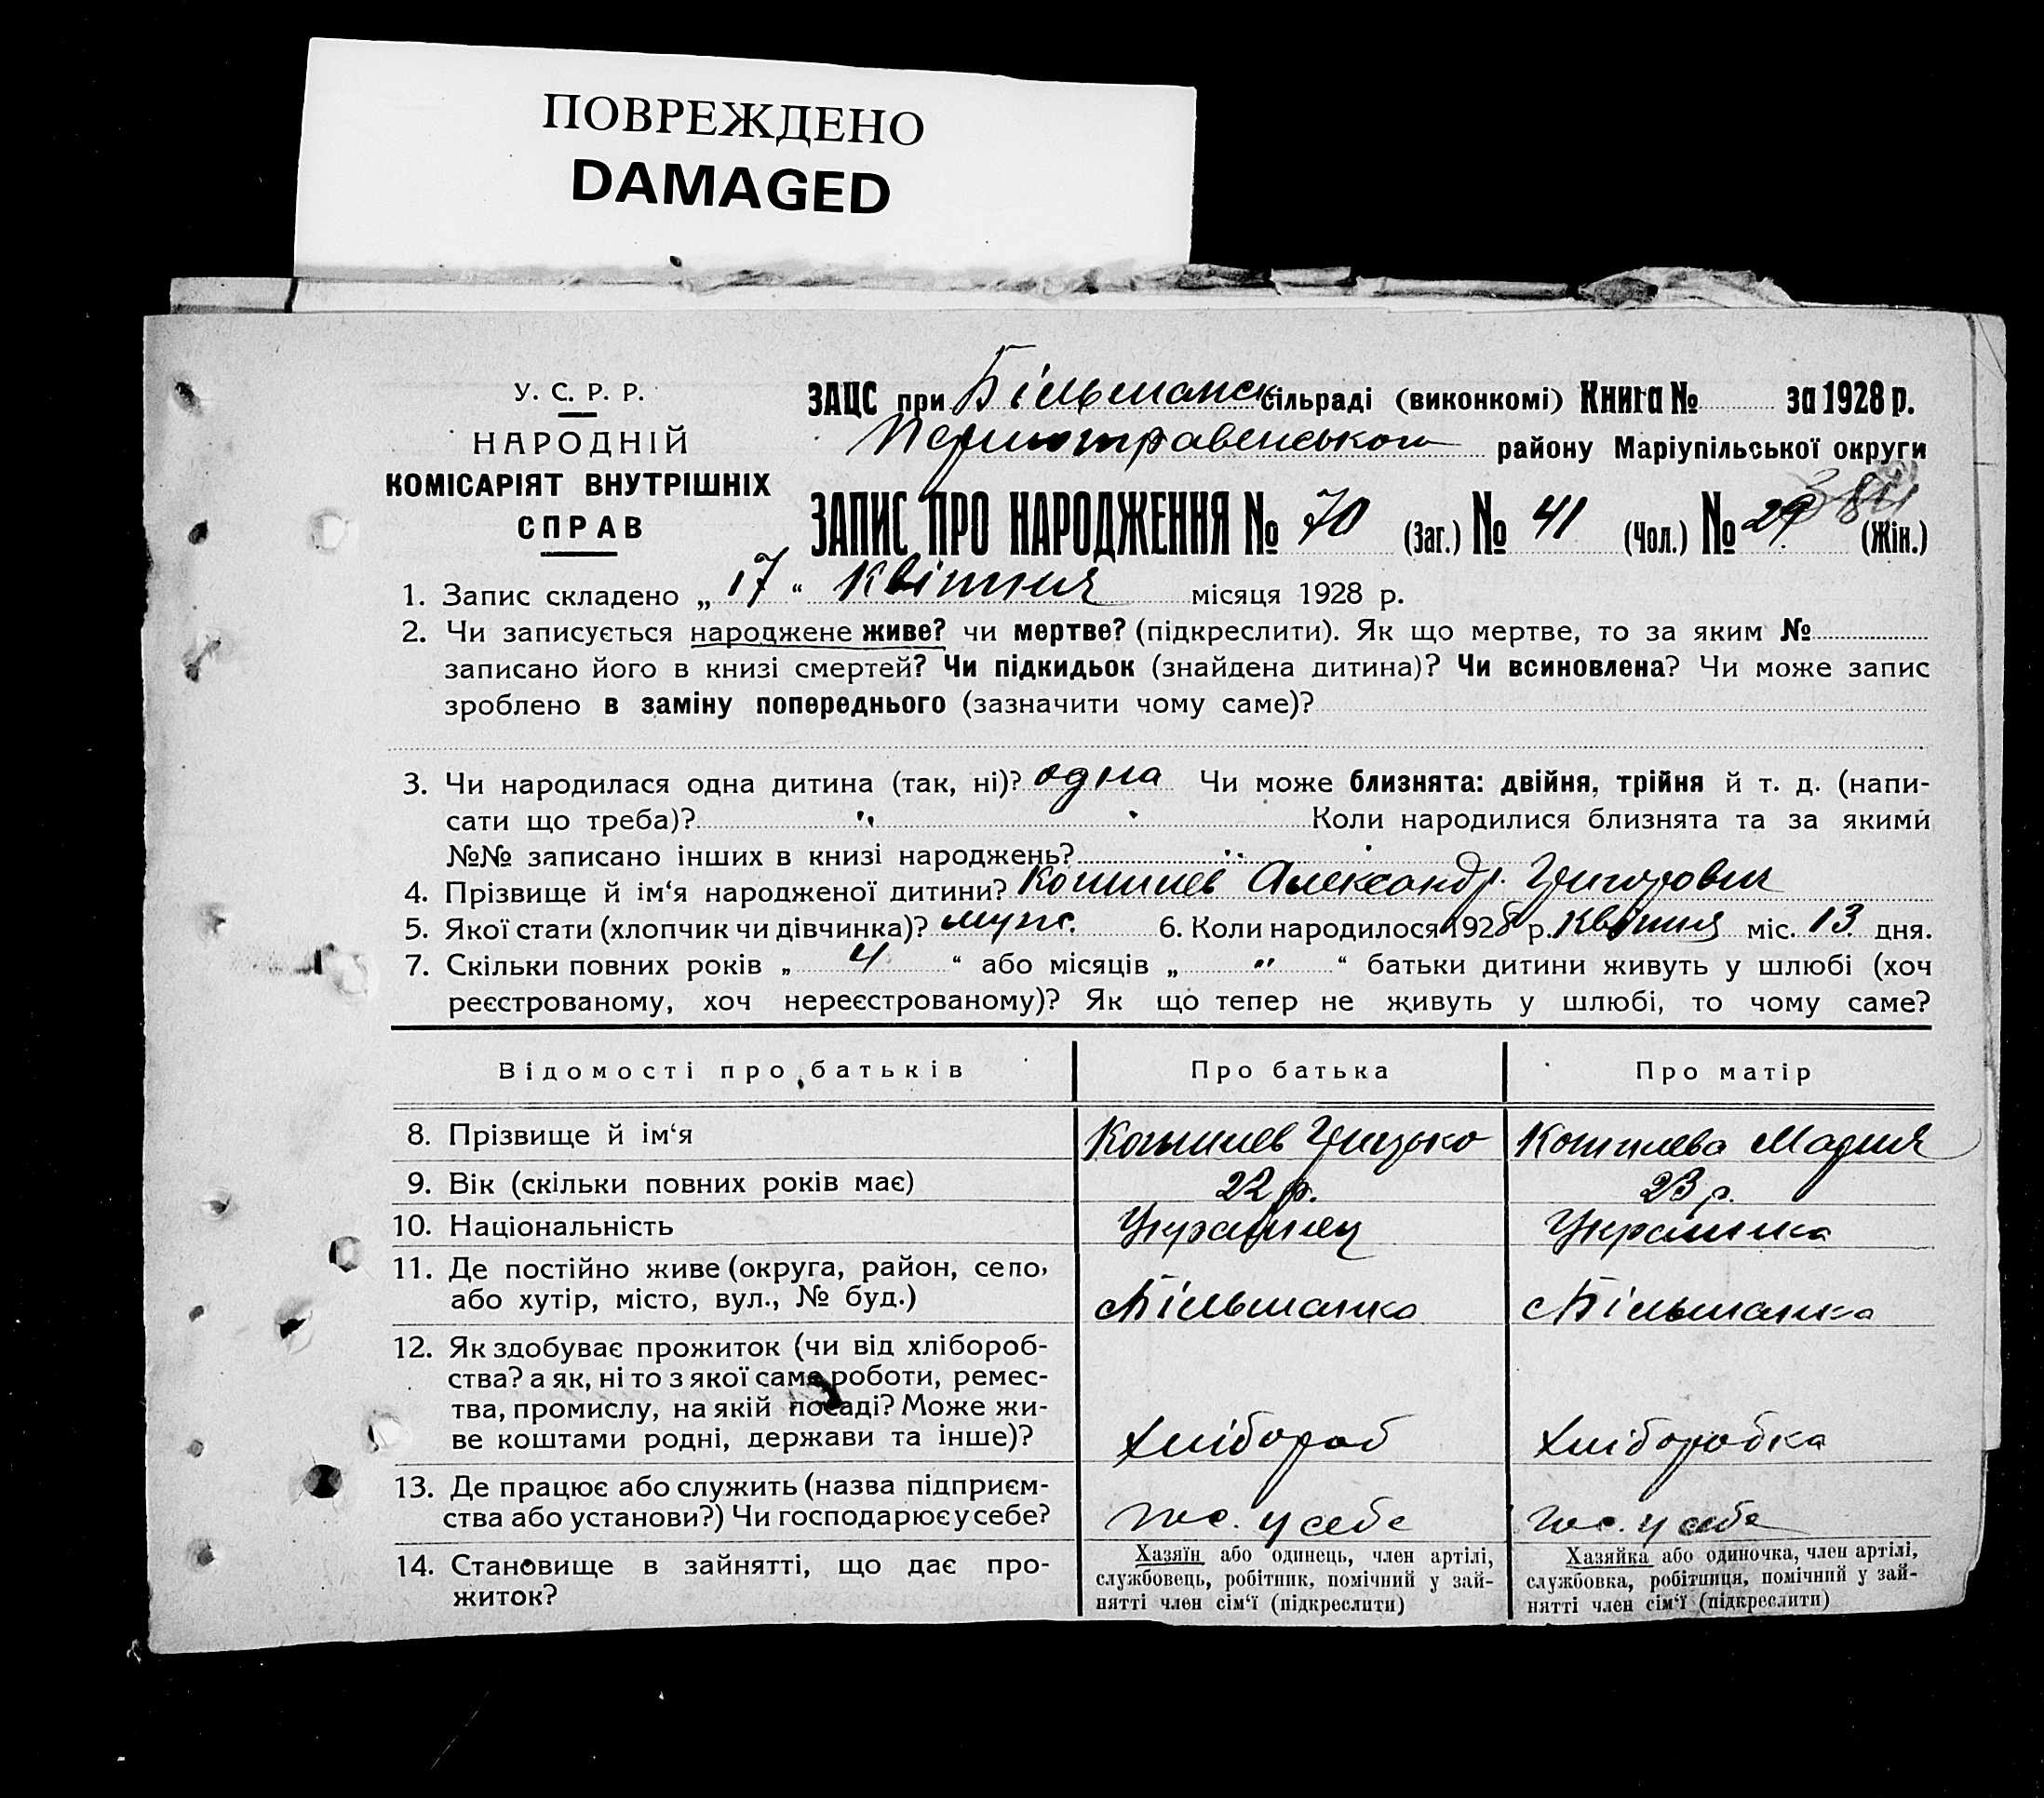 ПОВРЕЖДЕНО
DAMAGED
У. С. Р. Р.
НАРОДНІЙ
КОМІСАРІЯТ ВНУТРІШНІХ
СПРАВ
ЗАЦС при Більманск сільраді (виконкомі) Книга № за 1928 р.
Першотравенського району Маріупільської округи
ЗАПИС ПРО НАРОДЖЕННЯ № 70 (Заг.) № 41 (Чол.) № 29 (Жін.)
1. Запис складено „ 17 “ Квітня місяця 1928 р.
2. Чи записується народжене живе? чи мертве? (підкреслити). Як що мертве, то за яким №
записано його в книзі смертей? Чи підкидьок (знайдена дитина)? Чи всиновлена? Чи може запис
зроблено в заміну попереднього (зазначити чому саме)?
3. Чи народилася одна дитина (так, ні)? одна Чи може близнята: двійня, трійня й т. д. (напи-
сати що треба)? „ Коли народилися близнята та за якими
№№ записано інших в книзі народжень? „
4. Прізвище й ім‘я народженої дитини? Александр Григорович
5. Якої стати (хлопчик чи дівчинка)? муж. 6. Коли народилося 1928 р. Квітня міс. 13 дня.
7. Скільки повних років „ 4 “ або місяців „ „ “ батьки дитини живуть у шлюбі (хоч
реєстрованому, хоч нереєстрованому)? Як що тепер не живуть у шлюбі, то чому саме?
Відомості про батьків Про батька Про матір
8. Прізвище й ім‘я Грицько Мария
9. Вік (скільки повних років має) 22 р. 23 р.
10. Національність Украінец Украинка
11. Де постійно живе (округа, район, село,
або хутір, місто, вул., № буд.) Більманка Більманка
12. Як здобуває прожиток (чи від хлібороб-
ства? а як, ні то з якої саме роботи, ремес-
тва, промислу, на якій посаді? Може жи-
ве коштами родні, держави та інше)? Хлібороб Хліборобка
13. Де працює або служить (назва підприєм-
ства або установи?) Чи господарює у себе? у себе у себе
14. Становище в зайнятті, що дає про-
житок?
Хазяїн або одинець, член артілі,
службовець, робітник, помічний у зай-
нятті член сім‘ї (підкреслити)
Хазяйка або одиночка, член артілі,
службовка, робітниця, помічний у зай-
нятті член сім‘ї (підкреслити)